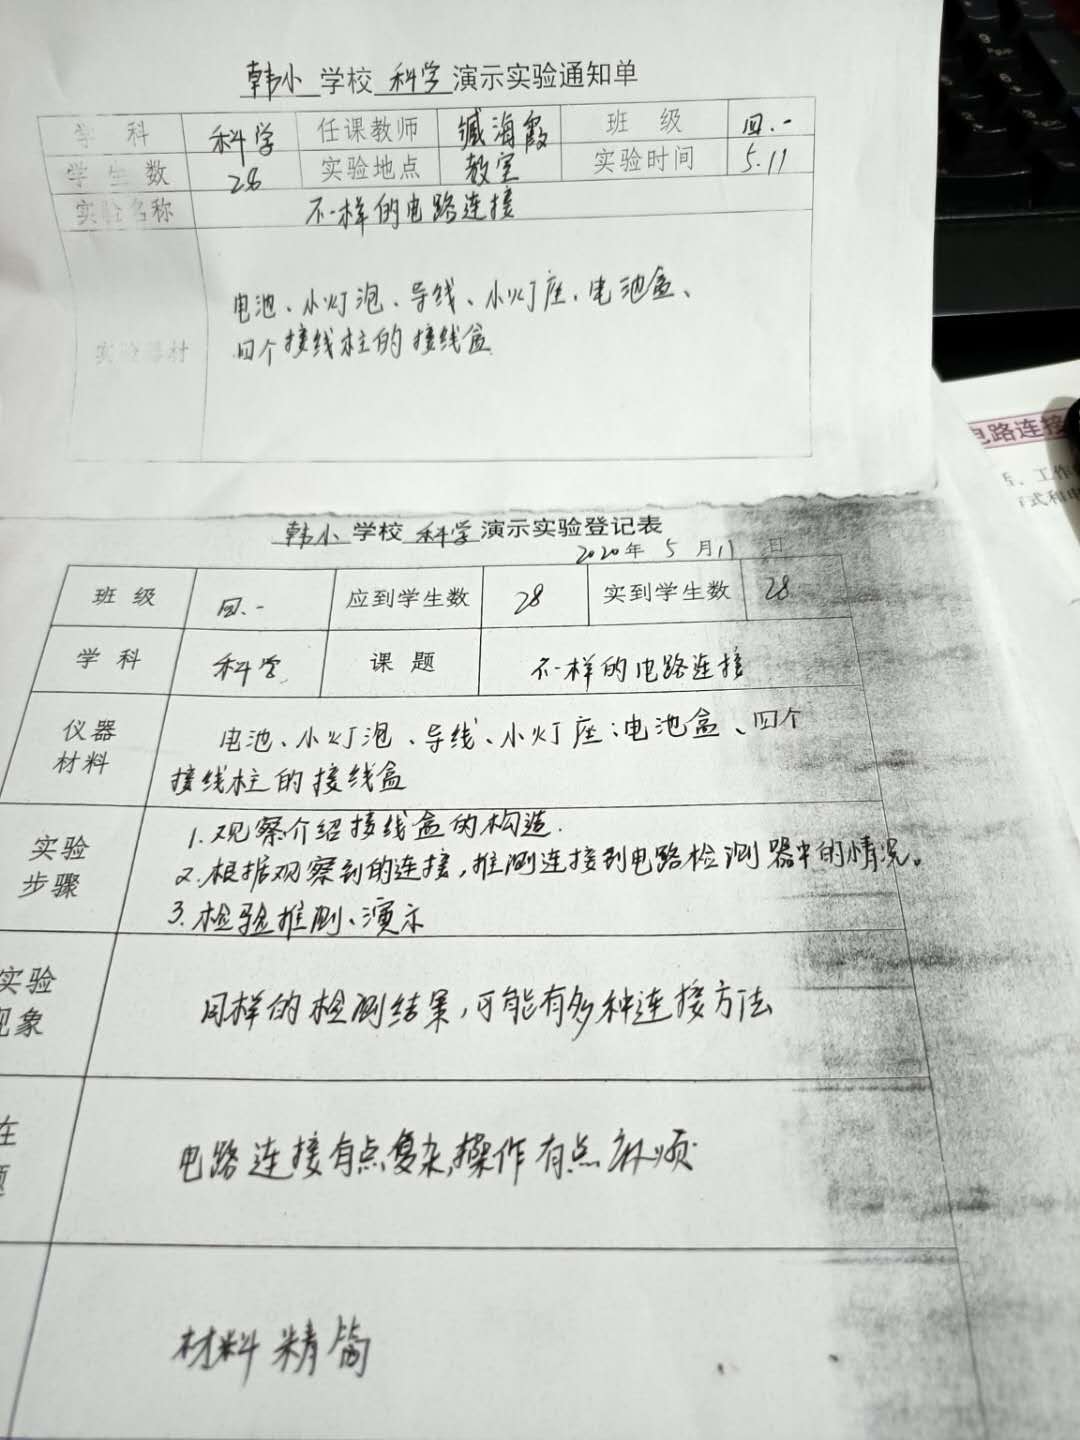 韩小 学校 科学 演示实验通知单
学 科 科学 任课教师 臧海霞 班 级 四.一
学 生 数 28 实验地点 教室 实验时间 5.11
实验名称 不一样的电路连接
电池、小灯泡、导线、小灯座、电池盒、
实验器材 四个接线柱的接线盒
电路连接
韩小 学校 科学 演示实验登记表
2020年 5 月11 日
班 级 四.一 应到学生数 28 实到学生数 28
学 科 科学 课 题 不一样的电路连接
仪器 电池、小灯泡、导线、小灯座、电池盒、四个
材料 接线柱的接线盒
1.观察介绍接线盒的构造.
实验 2.根据观察到的连接,推测连接到电路检测器中的情况。
步骤 3.检验推测、演示
实验
现象 同样的检测结果,可能有多种连接方法
在
题 电路连接有点复杂,操作有点麻烦
材料精简